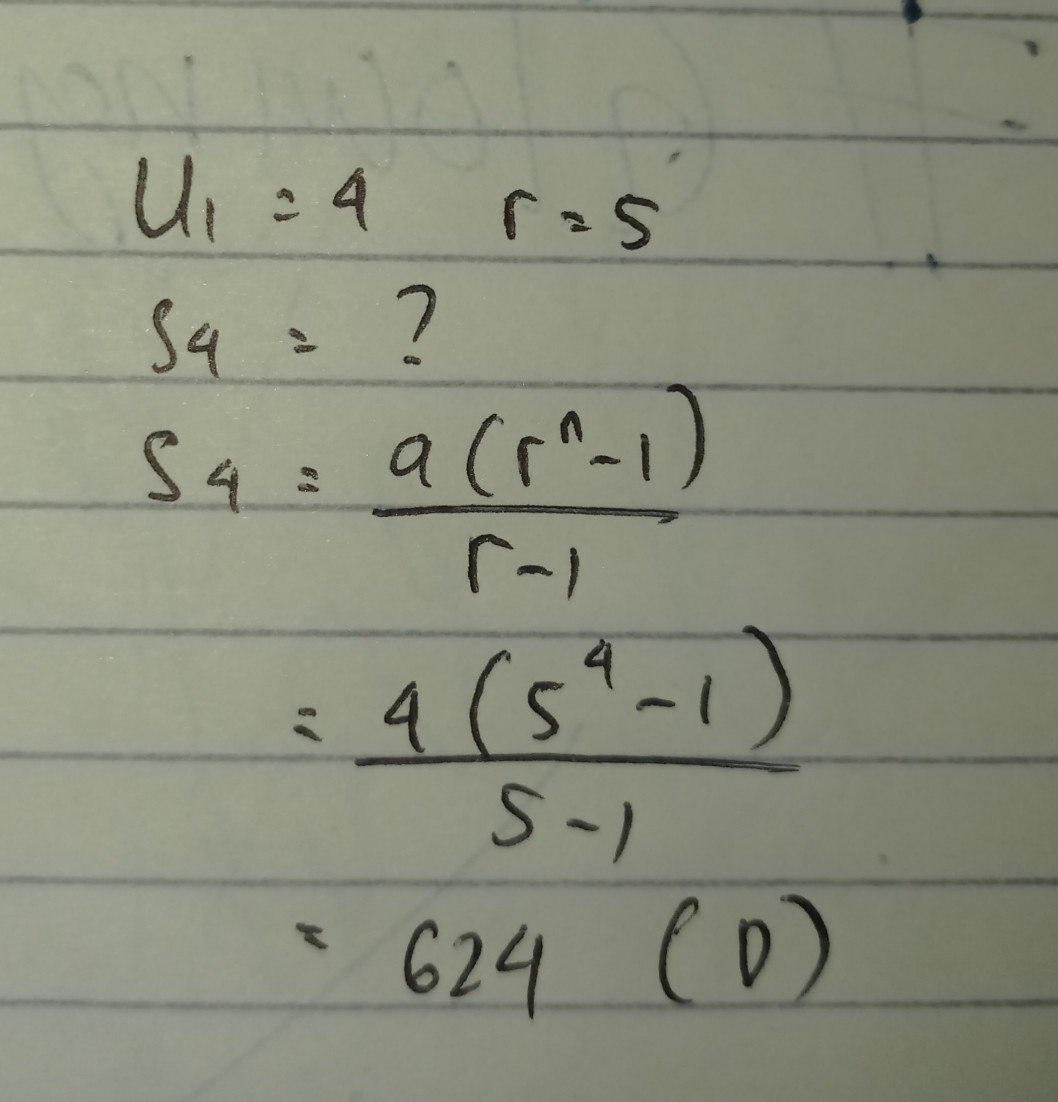 U₁ = 4 r = 5
S₄ = ?
S₄ = a(rⁿ-1)
r-1
= 4(5⁴-1)
5-1
= 624 (D)